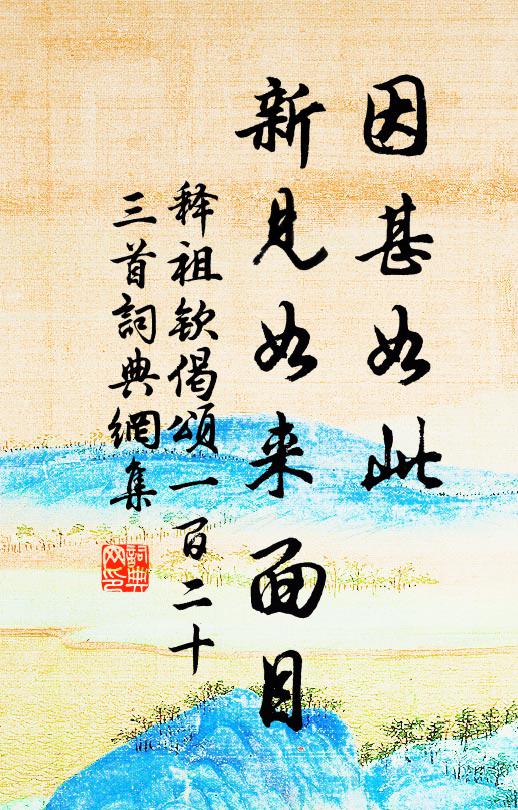 因甚如此
新见如来面目
释祖钦偈颂一百二十
三首詞典網集
詞典
网印